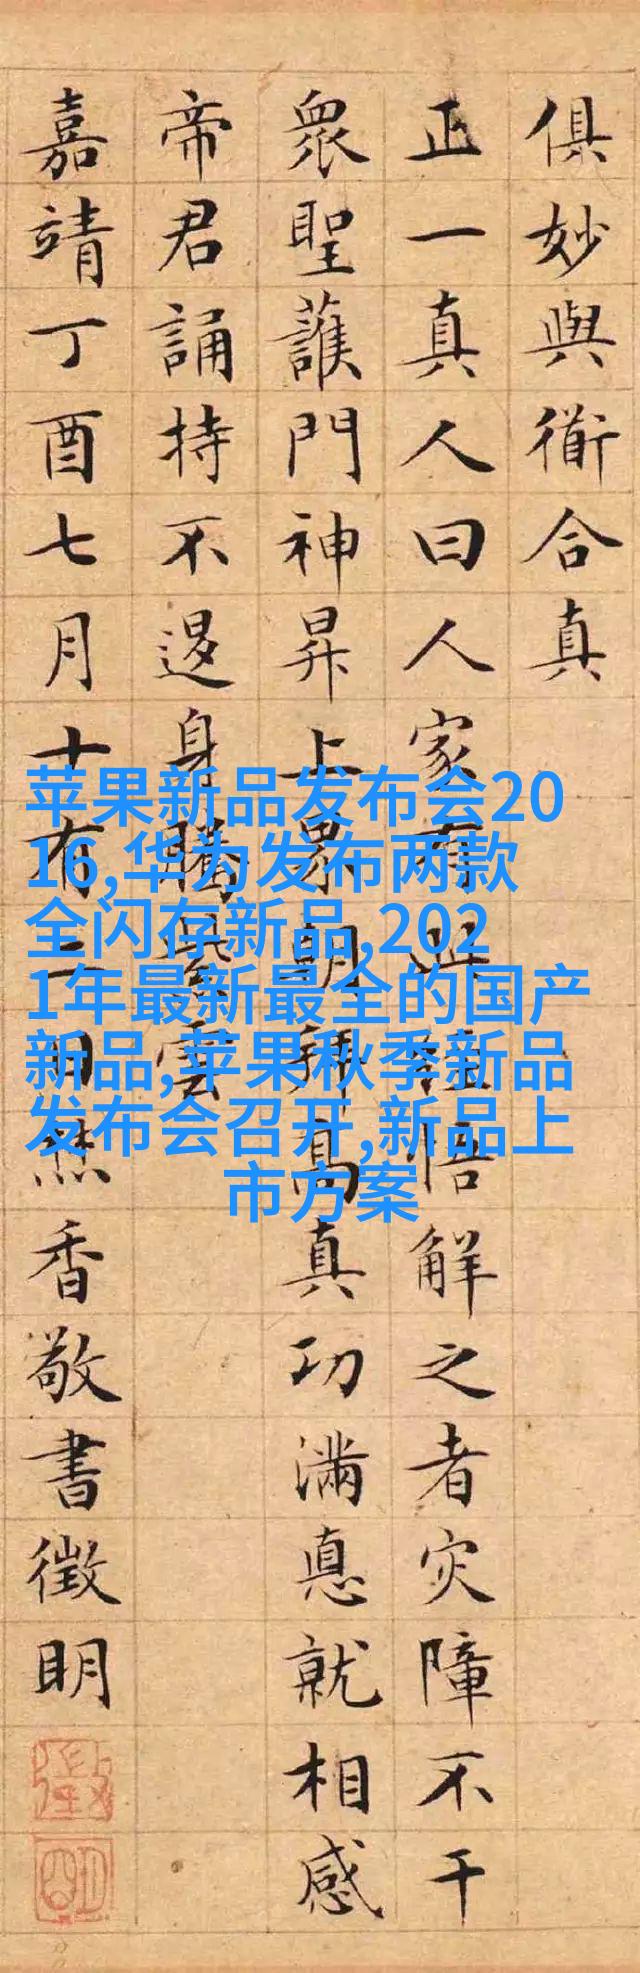 俱妙與衜合真
正一真人曰人家有此經悟解之者灾障不干
衆聖護門神昇上界朝拜高真功滿悳就相感
帝君誦持不退身騰紫雲
嘉靖丁酉七月十有二日焚香敬書徵明
徵
明
苹果新品发布会20
16,华为发布两款
全闪存新品,202
1年最新最全的国产
新品,苹果秋季新品
发布会召开,新品上
市方案